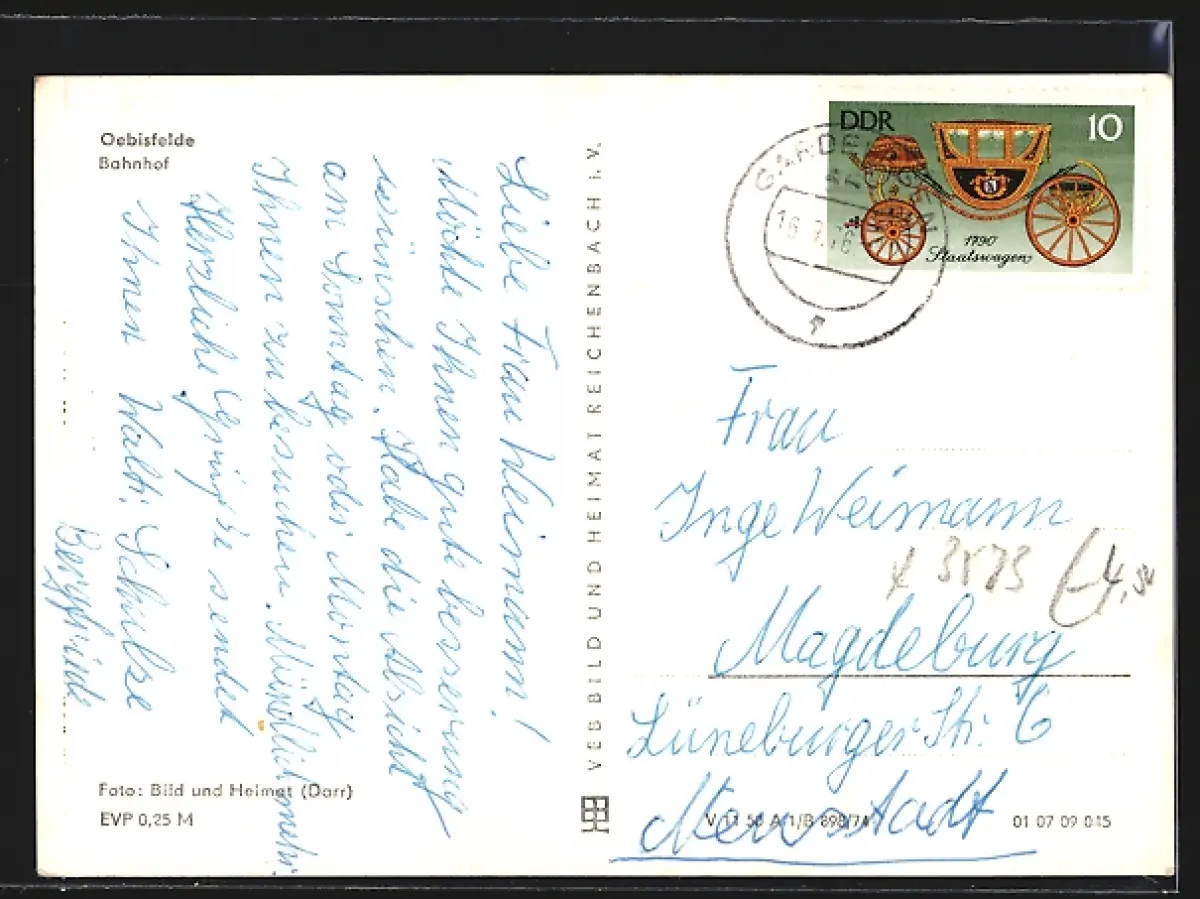 Oebisfelde
Bahnhof
Liebe Frau Weimann!
Möchte Ihnen gute besserung
wünschen. Habe die Absicht
am Sonntag oder Montag
Ihnen zu besuchen. Mündlich mehr.
Herzliche Grüße sendet
Ihnen Walt. Schulze
Bergfriede
Foto: Bild und Heimat (Darr)
EVP 0,25 M
VEB BILD UND HEIMAT REICHENBACH i. V.
DDR
10
1790
Staatswagen
GARDELEGEN
Frau
Inge Weimann
Magdeburg
Lüneburger Str. 6
Neustadt
V 11 50 A 1/B 898/74
01 07 09 015